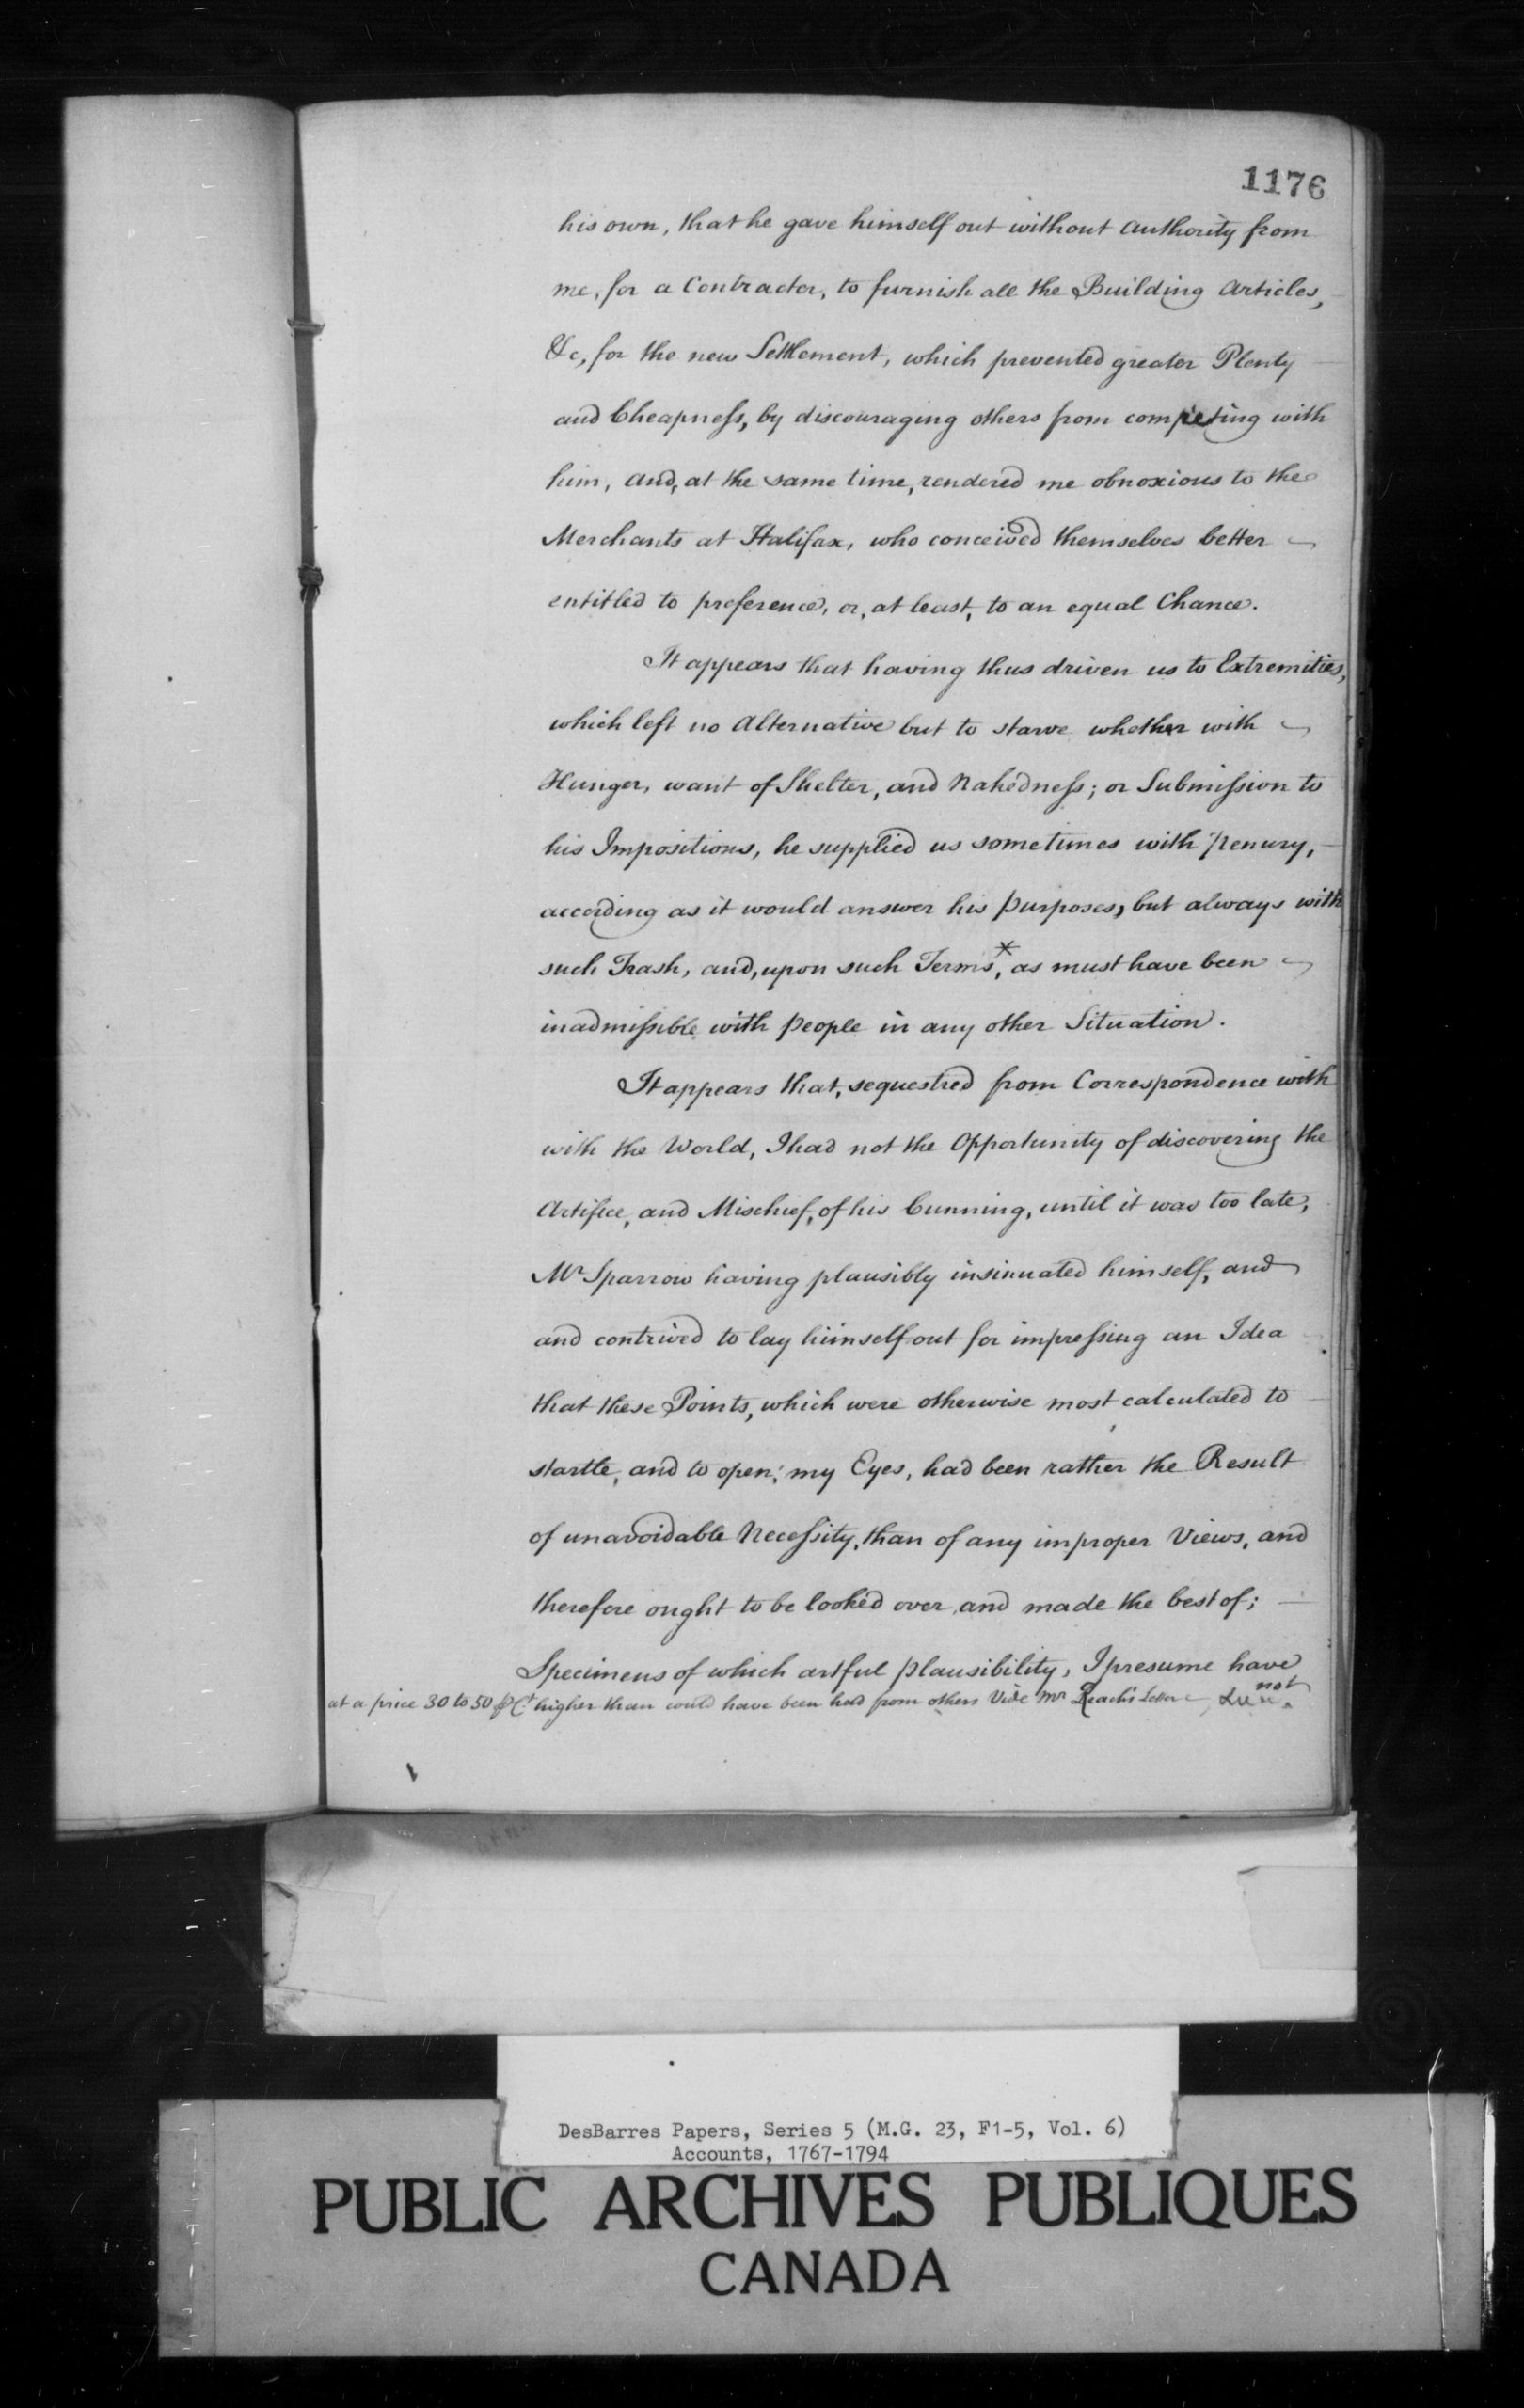 1176
his own, that he gave himself out without Authority from
me, for a Contractor, to furnish all the Building Articles,
&c, for the new Settlement, which prevented greater Plenty
and Cheapness, by discouraging others from competing with
him, and, at the same time, rendered me obnoxious to the
Merchants at Halifax, who conceived themselves better
entitled to preference, or, at least, to an equal Chance.
It appears that having thus driven us to Extremities,
which left no Alternative but to starve whether with
Hunger, want of Shelter, and Nakedness; or Submission to
his Impositions, he supplied us sometimes with penury,
according as it would answer his purposes, but always with
such Trash, and, upon such Terms*, as must have been
inadmissible with people in any other Situation.
It appears that, sequestred from Correspondence with
with the World, I had not the Opportunity of discovering the
Artifice, and Mischief, of his Cunning, until it was too late,
Mr Sparrow having plausibly insinuated himself, and
and contrived to lay himself out for impressing an Idea
that these Points, which were otherwise most calculated to
startle, and to open, my Eyes, had been rather the Result
of unavoidable Necessity, than of any improper Views, and
therefore ought to be looked over, and made the best of;
Specimens of which artful plausibility, I presume have
not
at a price 30 to 50 P Ct higher than could have been had from others Vide Mr Leach's Letter
DesBarres Papers, Series 5 (M.G. 23, F1-5, Vol. 6)
Accounts, 1767-1794
PUBLIC ARCHIVES PUBLIQUES
CANADA